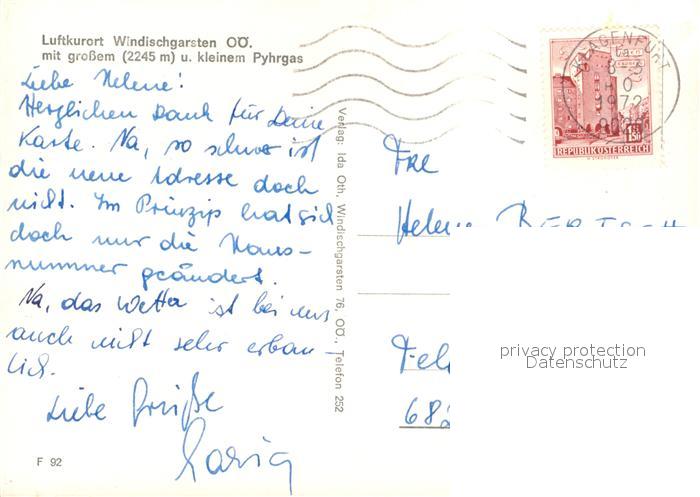 Luftkurort Windischgarsten OÖ.
mit großem (2245 m) u. kleinem Pyhrgas
Liebe Helene!
Herzlichen Dank für Deine
Karte. Na, so schwer ist
die neue Adresse doch
nicht. Im Prinzip hat sich
doch nur die Haus-
nummer geändert.
Na, das Wetter ist bei uns
auch nicht sehr erbau-
lich.
Liebe Grüße
F 92
Verlag: Ida Oth, Windischgarsten 76, OÖ., Telefon 252
KLAGENFURT
1972
1.50
REPUBLIK ÖSTERREICH
Helene
privacy protection
Datenschutz